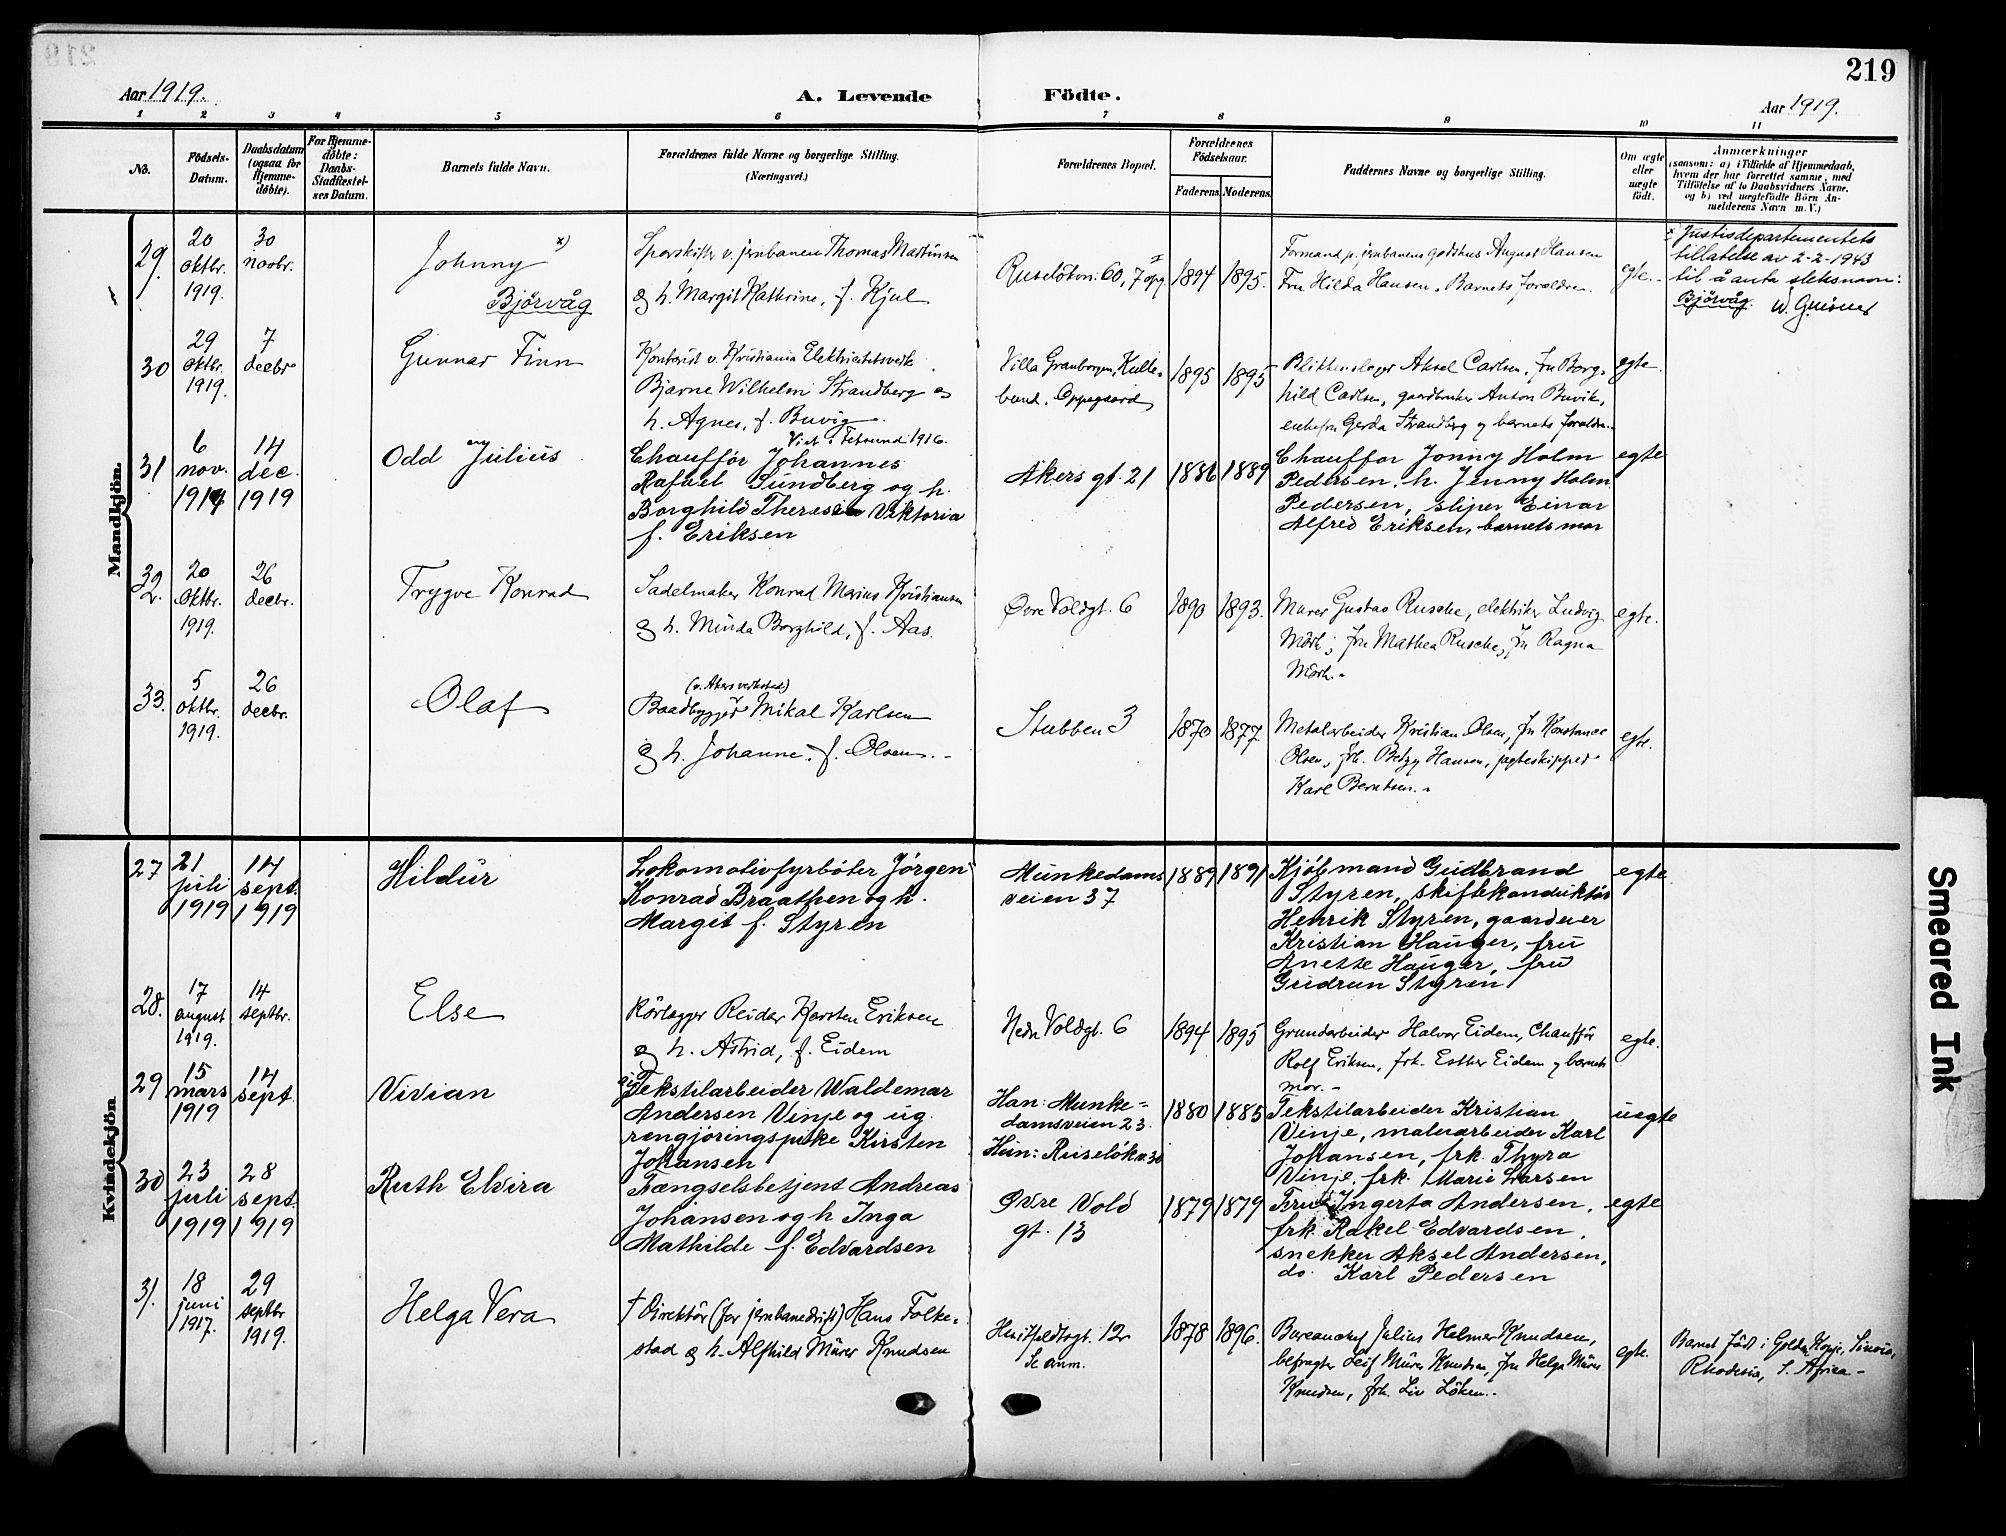 219
Aar 1919.
A. Levende Födte.
Aar 1919.
1 2 3 4 5 6 7 8 9 10 11
No.
Födsels-
Datum.
Daabsdatum
(ogsaa for
Hjemme-
döbte).
For Hjemme-
döbte:
Daabs-
Stadfæstel-
ses Datum.
Barnets fulde Navn.
Forældrenes fulde Navne og borgerlige Stilling.
(Næringsvei.)
Forældrenes Bopæl.
Forældrenes
Födselsaar.
Faderens. Moderens.
Faddernes Navne og borgerlige Stilling.
Om ægte
eller
uægte
födt.
Anmærkninger
(saasom: a) i Tilfælde af Hjemmedaab,
hvem der har forrettet samme, med
Tilföielse af to Daabsvidners Navne.
og b) ved uægtefödte Börn An-
melderens Navn m. V.)
Mandkjön.
29.
20
oktbr.
1919.
30
novbr.
Johnny x)
Björvåg
Sporskifter v. jernbanen Thomas Martinsen
og h. Margit Kathrine, f. Kjul
Ruselökvn: 60, 7 opg. I
1894 1895.
Formand p. jernbanens godshus August Hansen
Fru Hilda Hansen, Barnets forældre.
egte.
x Justisdepartementets
tillatelse av 2-2-1943
til å anta slektsnavn:
Björvåg.
30
29
oktbr.
1919.
7
decbr
Gunnar Finn
Kontorist v. Kristiania Elektricitetsverk
Bjarne Wilhelm Strandberg og
h. Agnes, f. Buvig
Viet i Fetsund 1916.
Villa Granborgen, Kulle-
bund. Oppegaard
1895 1895
Blikkenslager Aksel Carlsen, fru Borg-
hild Carlsen, gaardbruker Anton Buvik,
enkefru Gerda Strandberg og barnets forældre.
egte.
31
6
nov.
1919
14
dec.
1919
Odd Julius
Chaufför Johannes
Rafael Sundberg og h.
Borghild Theresia Viktoria
f. Eriksen
Akers gt. 21
1886 1889
Chauffor Jonny Holm
Pedersen, h. Jenny Holm
Pedersen, sliper Einar
Alfred Eriksen, barnets mor
egte
32.
20
Oktbr.
1919.
26
decbr.
Trygve Konrad
Sadelmaker Konrad Marius Kristiansen
og h. Minda Borghild, f. Aas.
Øvre Voldgt. 6
1890 1893.
Murer Gustav Rusche, elektriker Ludvig
Mörk; fru Mathea Rusche, fru Ragna
Mörk.
egte.
33.
5
oktbr.
1919.
26
decbr.
Olaf
(v. Akers verksted)
Baadbygger Mikal Karlsen
og h. Johanne, f. Olsen.
Stubben 3
1870 1877.
Metalarbeider Kristian Olsen, fru Konstance
Olsen, frk. Betzy Hansen, jagteskipper
Karl Berntsen.
egte.
Kvindekjön
27
21
juli
1919
14
sept.
1919
Hildur
Lokomotivfyrbøter Jörgen
Konrad Braathen og h.
Margit f. Styren
Munkedams
veien 37
1889 1891
Kjöbmand Gudbrand
Styren, skiftekonduktör
Henrik Styren, gaardeier
Kristian Hauger, fru
Anette Hauger, fru
Gudrun Styren
egte
28.
17
august
1919.
14
septbr.
Else
Rörlegger Reidar Karsten Eriksen
og h. Astrid, f. Eidem
Nedr Voldgt. 6
1894 1895
Grundarbeider Halvor Eidem, Chaufför
Rolf Eriksen, frk. Esther Eidem og barnets
mor.
egte.
29
15
mars
1919
14
sept.
Vivian
Tekstilarbeider Waldemar
Andersen Vinje og ug.
rengjöringspike Kirsten
Johansen
Han: Munke-
damsveien 23.
Hun: Ruselökv. 30
1880 1885
Tekstilarbeider Kristian
Vinje, malerarbeider Karl
Johansen, frk. Thyra
Vinje, frk. Marie Larsen
uegte
30
23
juli
1919
28
sept.
1919
Ruth Elvira
Fængselsbetjent Andreas
Johansen og h Inga
Mathilde f. Edvardsen
Øvre Vold
gt. 13
1879 1879
Fru Ingerta Andersen,
frk. Rakel Edvardsen,
snekker Aksel Andersen,
do. Karl Pedersen
egte
31.
18
juni
1917.
29
septbr
1919.
Helga Vera
† Direktör (for jernbanedrift) Hans Folke-
stad og h. Alfhild Mürer Knudsen
Huitfeldtsgt. 12
Se anm.
1878 1896.
Bureauchef Julius Helmer Knudsen,
befragter Leif Mürer Knudsen, fru Helga Mürer
Knudsen, frk. Liv Löken.
egte.
Barnet född i Golden Kopje, Sinoia,
Rhodesia, S. Africa
Smeared Ink